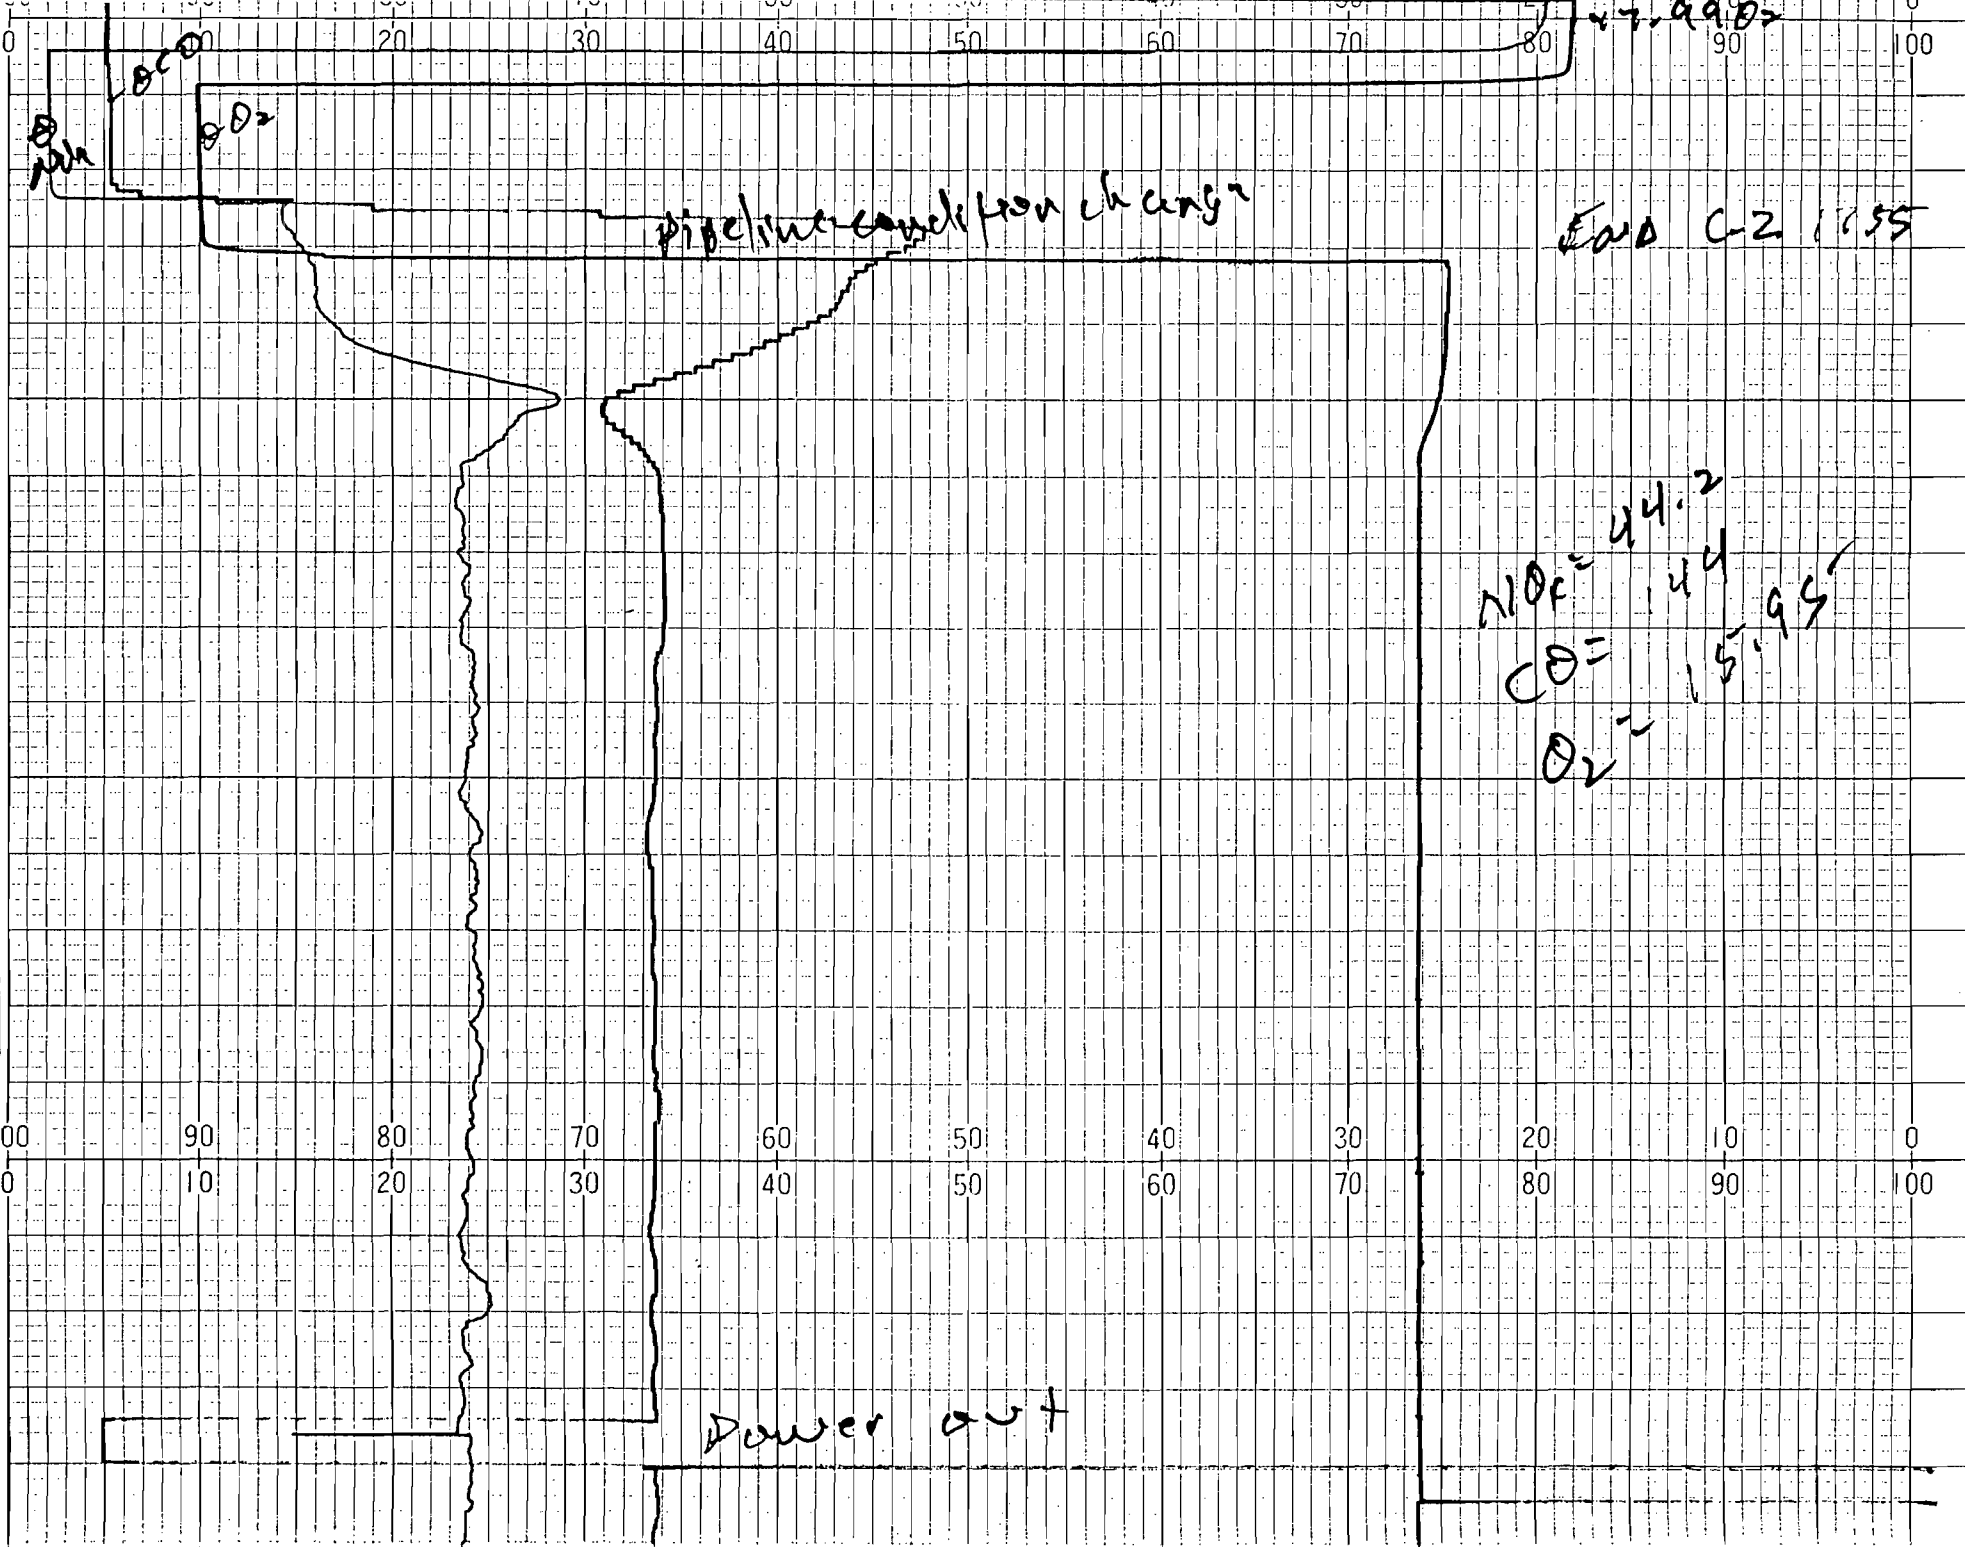 0 10 20 30 40 50 60 70 80 90 100
0 CO
0 O2
Pipeline condition change
End C-2 1155
NOx = 44.2
CO = .44
O2 = 15.95
00 90 80 70 60 50 40 30 20 10 0
0 10 20 30 40 50 60 70 80 90 100
Power out